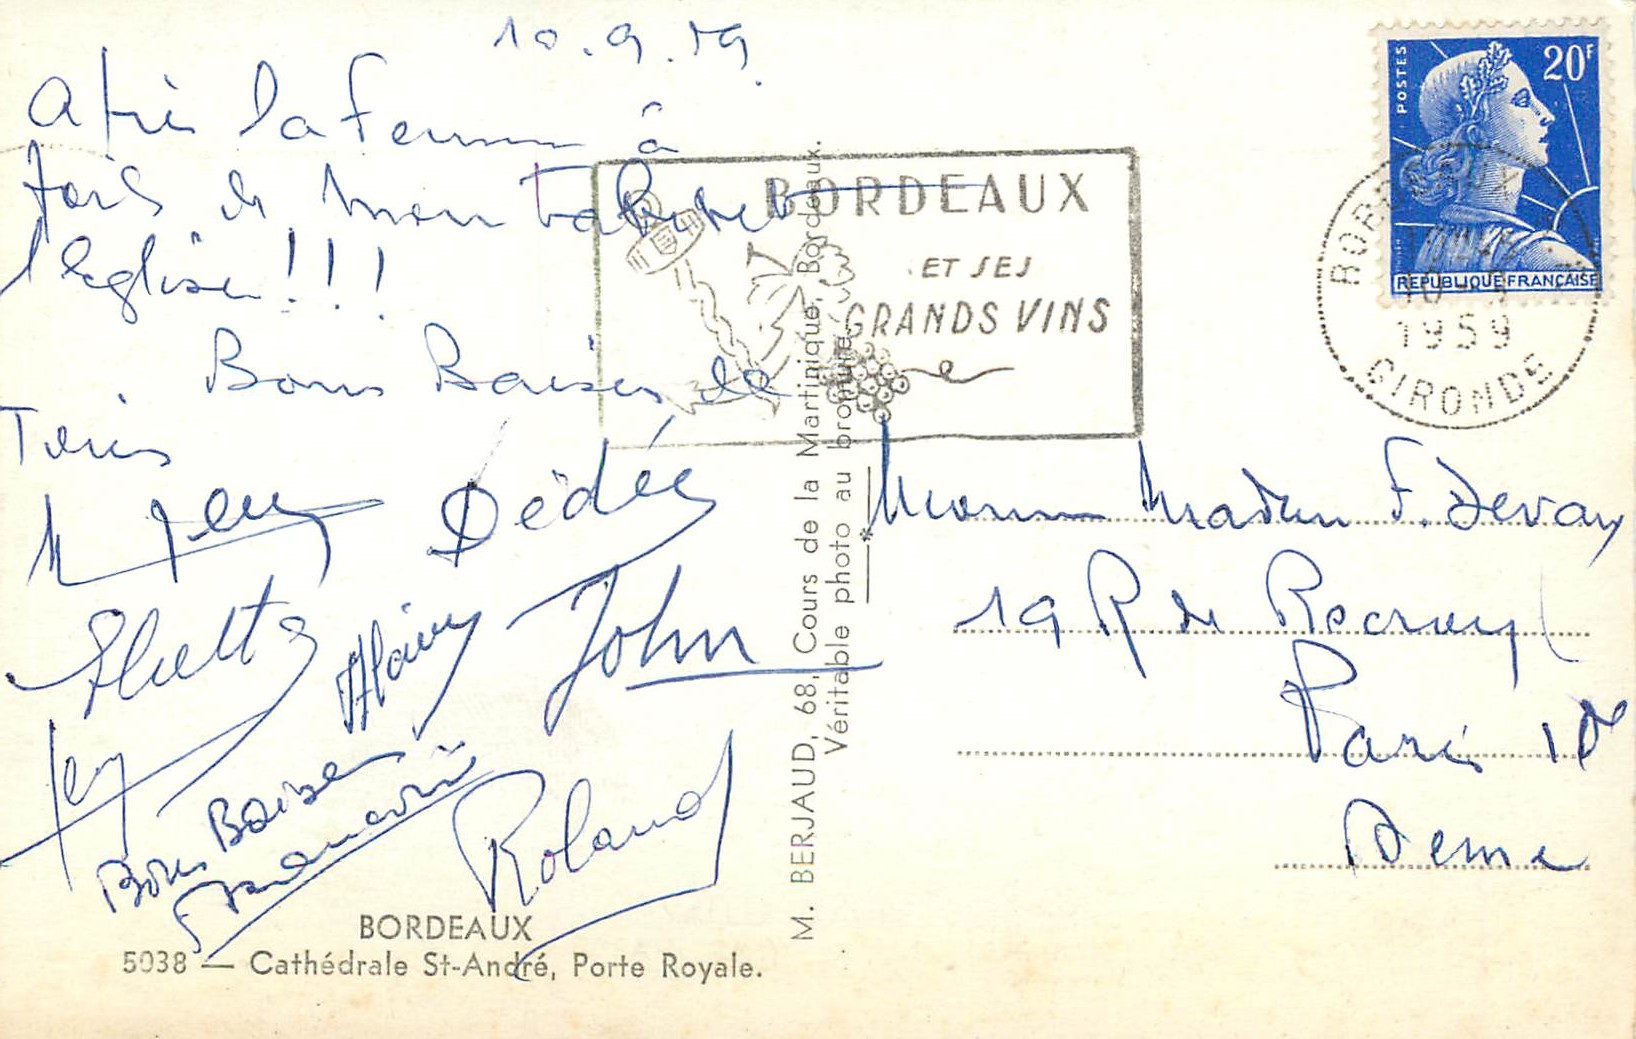 10.9.59.
Après la femme à
foils de mon
l'église!!!
Bons Baisers de
Tous
Dédée
Alain
John
Bons Baisers
Roland
BORDEAUX
5038 — Cathédrale St-André, Porte Royale.
M. BERJAUD, 68, Cours de la Martinique, Bordeaux.
Véritable photo au bromure.
BORDEAUX
ET SES
GRANDS VINS
POSTES
20F
REPUBLIQUE FRANÇAISE
BORDEAUX
1959
GIRONDE
F. Devaux
19 R de Rocroy
Paris 10e
Seine